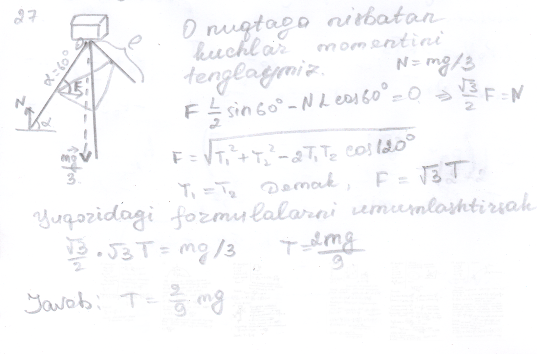 27
O nuqtaga nisbatan
kuchlar momentini
tenglaymiz. N = mg/3
F L/2 sin60° - NLcos60° = 0 ⇒ √3/2 F = N
F = √(T₁² + T₂² - 2T₁T₂ cos120°)
T₁ = T₂ Demak, F = √3 T
Yuqoridagi formulalarni umumlashtirsak
√3/2 · √3 T = mg/3 T = 2mg/9
Javob: T = 2/9 mg
O
l
α=60°
F
N
α
mg/3